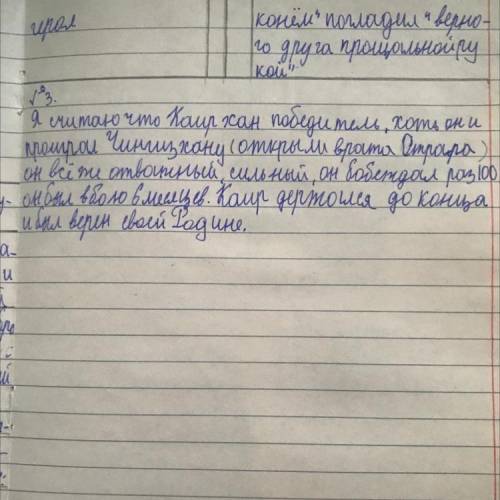 героя
конём" погладил "верно-
го друга прощальной ру
кой"
№3.
Я считаю что Каирхан победитель, хоть он и
проиграл Чингизхану (открыли врата Отрара)
он всё же отважный, сильный, он бобеждал раз 100
он был в бою 6 месяцев. Каир держался до конца
и был верен своей Родине.